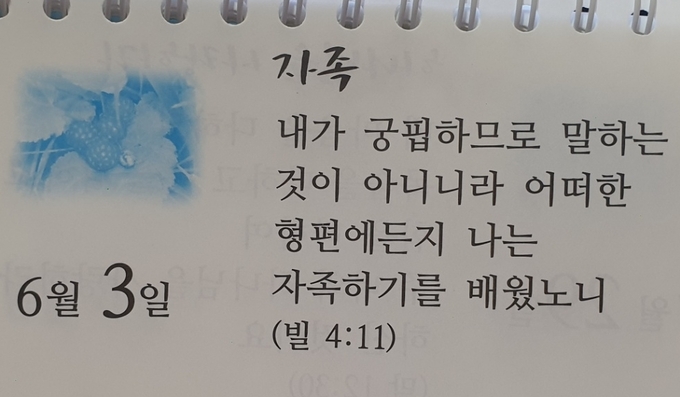 자족
내가 궁핍하므로 말하는
것이 아니니라 어떠한
형편에든지 나는
자족하기를 배웠노니
(빌 4:11)
6월 3일